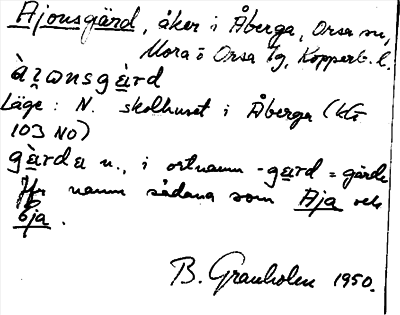 Ajonsgärd, åker i Åberga, Orsa sn,
Mora o Orsa tg, Kopparb. l.
Läge: N. skolhuset i Åberga (kt
103 NO)
gärda n., i ortnamn -gärd = gärde
Jfr namn sådana som Aja och
Öja.
B. Granholm 1950.